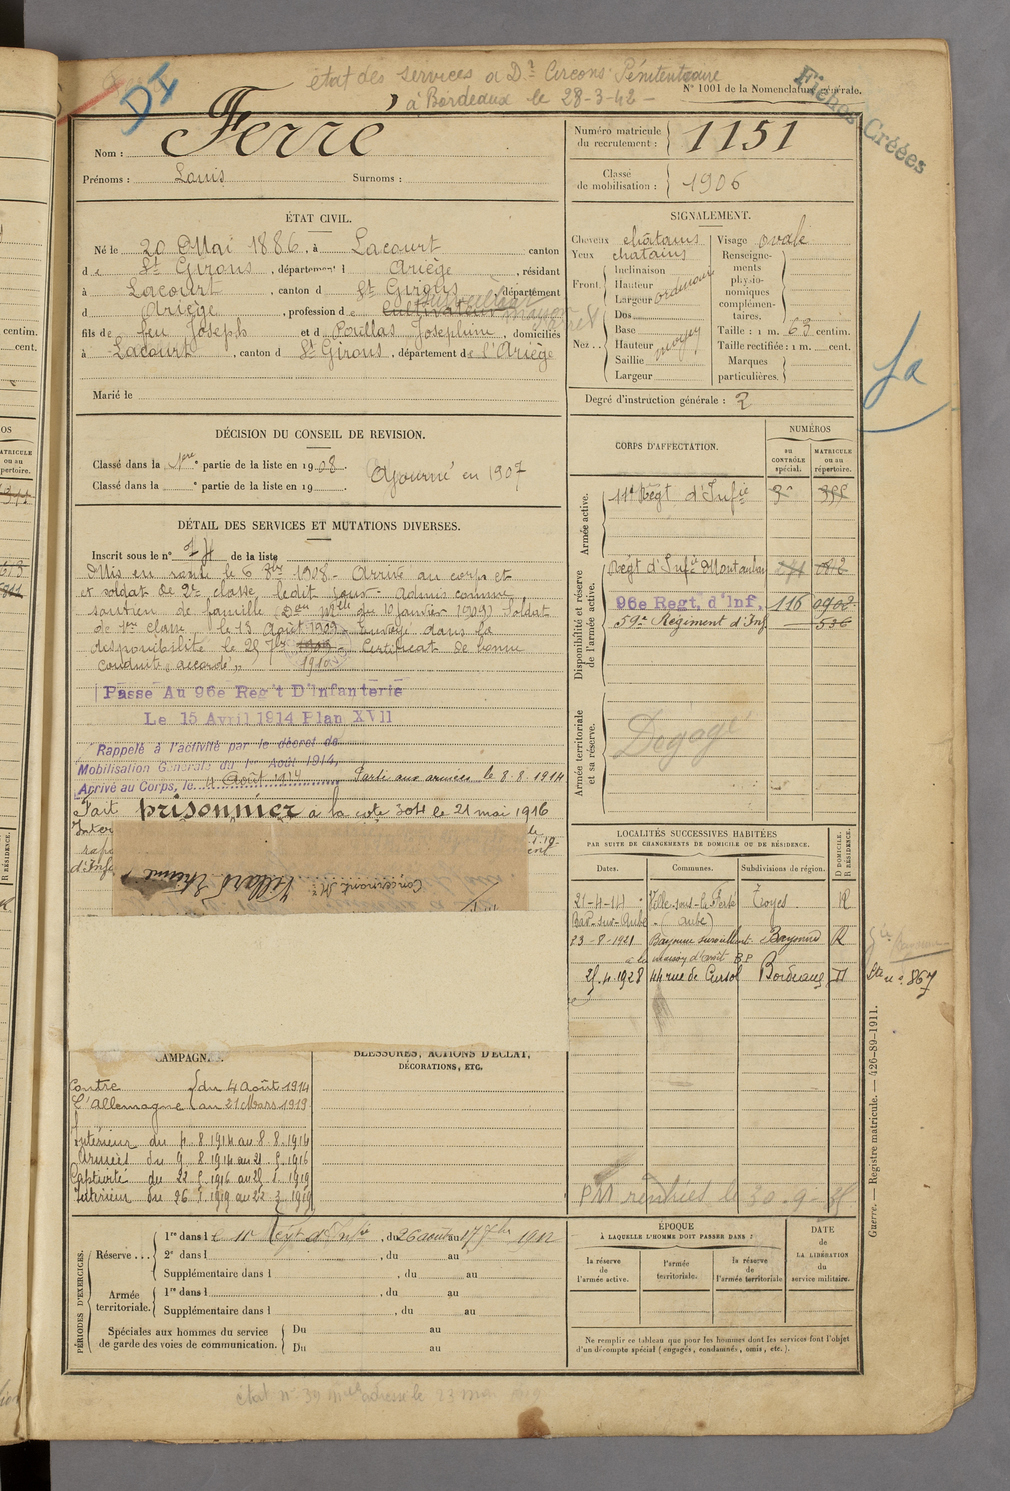 état des services a D.on Circons. Pénitentiaire
à Bordeaux le 28-3-42 -
N° 1001 de la Nomenclature générale.
DI
Fiches Créées
Nom : Ferré
Prénoms : Louis Surnoms :
Numéro matricule du recrutement : 1151
Classe de mobilisation : 1906
ÉTAT CIVIL.
Né le 20 Mai 1886, à Lacourt canton
de St Girons, département d Ariège, résidant
à Lacourt, canton d St Girons, département
d Ariège, profession de Cultivateur
fils de feu Joseph et d Pouillas Josephine, domiciliés
à Lacourt, canton d St Girons, département de l'Ariège
Marié le
SIGNALEMENT.
Cheveux châtains
Yeux châtains
Front. Inclinaison
Hauteur
Largeur ordinaire
Nez .. Dos
Base
Hauteur moyen
Saillie
Largeur
Visage ovale
Renseignements physionomiques complémentaires.
Taille : 1 m. 63 centim.
Taille rectifiée : 1 m. cent.
Marques particulières.
Degré d'instruction générale : 2
DÉCISION DU CONSEIL DE REVISION.
Classé dans la 1ère partie de la liste en 1908.
Classé dans la e partie de la liste en 19
Ajourné en 1907
DÉTAIL DES SERVICES ET MUTATIONS DIVERSES.
Inscrit sous le n° 74 de la liste
Mis en route le 6 8bre 1908 - Arrivé au corps et
et soldat de 2e classe, ledit jour - Admis comme
soutien de famille (Don Mlle du 10 janvier 1909) Soldat
de 1ère classe le 13 Août 1909. Envoyé dans la
disponibilité le 25 7bre 1910. Certificat de bonne
conduite "accordé"
Passé Au 96e Reg't D'Infanterie
Le 15 Avril 1914 Plan XVII
Rappelé à l'activité par le décret de
Mobilisation Générale du 1er Août 1914,
Arrivé au Corps, le 4 Août 1914 Parti aux armées le 8.8.1914
Fait prisonnier a la cote 304 le 21 mai 1916
Inter
rapa
d'Infa
Concernant Mr Villard Etienne
CORPS D'AFFECTATION.
NUMÉROS
au CONTRÔLE spécial.
MATRICULE ou au répertoire.
Armée active.
11e Régt d'Infie
Disponibilité et réserve de l'armée active.
Régt d'Infie Montauban
96e Regt. d'Inf. 116 0902
59e Régiment d'Inf 536
Armée territoriale et sa réserve.
Dégagé
LOCALITÉS SUCCESSIVES HABITÉES
PAR SUITE DE CHANGEMENTS DE DOMICILE OU DE RÉSIDENCE.
Dates. Communes. Subdivisions de région. D DOMICILE. R RÉSIDENCE.
21-4-14 Ville-sous-la-Ferté Troyes. R
Bar-sur-Aube - (Aube)
23-8-1921 Bayonne surveillant Bayonne R
a la maison d'arrêt BP
25.4.1928 44 rue de Cursol Bordeaux D
Ste n° 867
CAMPAGNES.
Contre l'Allemagne du 4 Août 1914 au 21 Mars 1919
Intérieur du 4.8.1914 au 8.8.1914
Armées du 9.8.1914 au 21.5.1916
Captivité du 22.5.1916 au 25.1.1919
Intérieur du 26.1.1919 au 22.3.1919
BLESSURES, ACTIONS D'ÉCLAT,
DÉCORATIONS, ETC.
PM rentrées le 30-9-35
PÉRIODES D'EXERCICES.
Réserve ... 1re dans le 11e Régt d'Infie, du 26 août au 17 7bre 1912
2e dans l , du au
Supplémentaire dans l , du au
Armée territoriale. 1re dans l , du au
Supplémentaire dans l , du au
Spéciales aux hommes du service de garde des voies de communication. Du au
Du au
ÉPOQUE
À LAQUELLE L'HOMME DOIT PASSER DANS :
la réserve de l'armée active.
l'armée territoriale.
la réserve de l'armée territoriale
DATE de LA LIBÉRATION du service militaire.
Ne remplir ce tableau que pour les hommes dont les services font l'objet
d'un décompte spécial (engagés, condamnés, omis, etc.).
Guerre. — Registre matricule. — 426-89-1911.